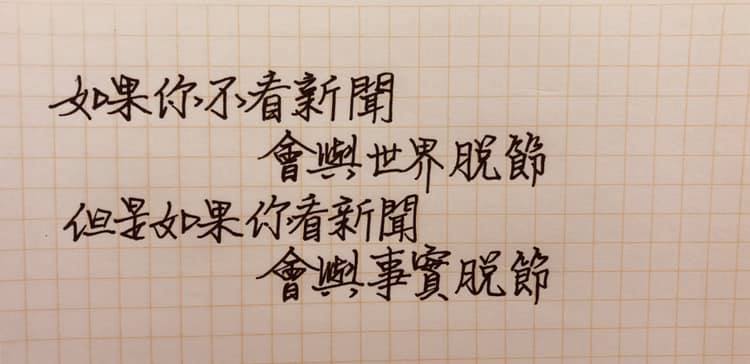 如果你不看新聞
會與世界脱節
但是如果你看新聞
會與事實脱節